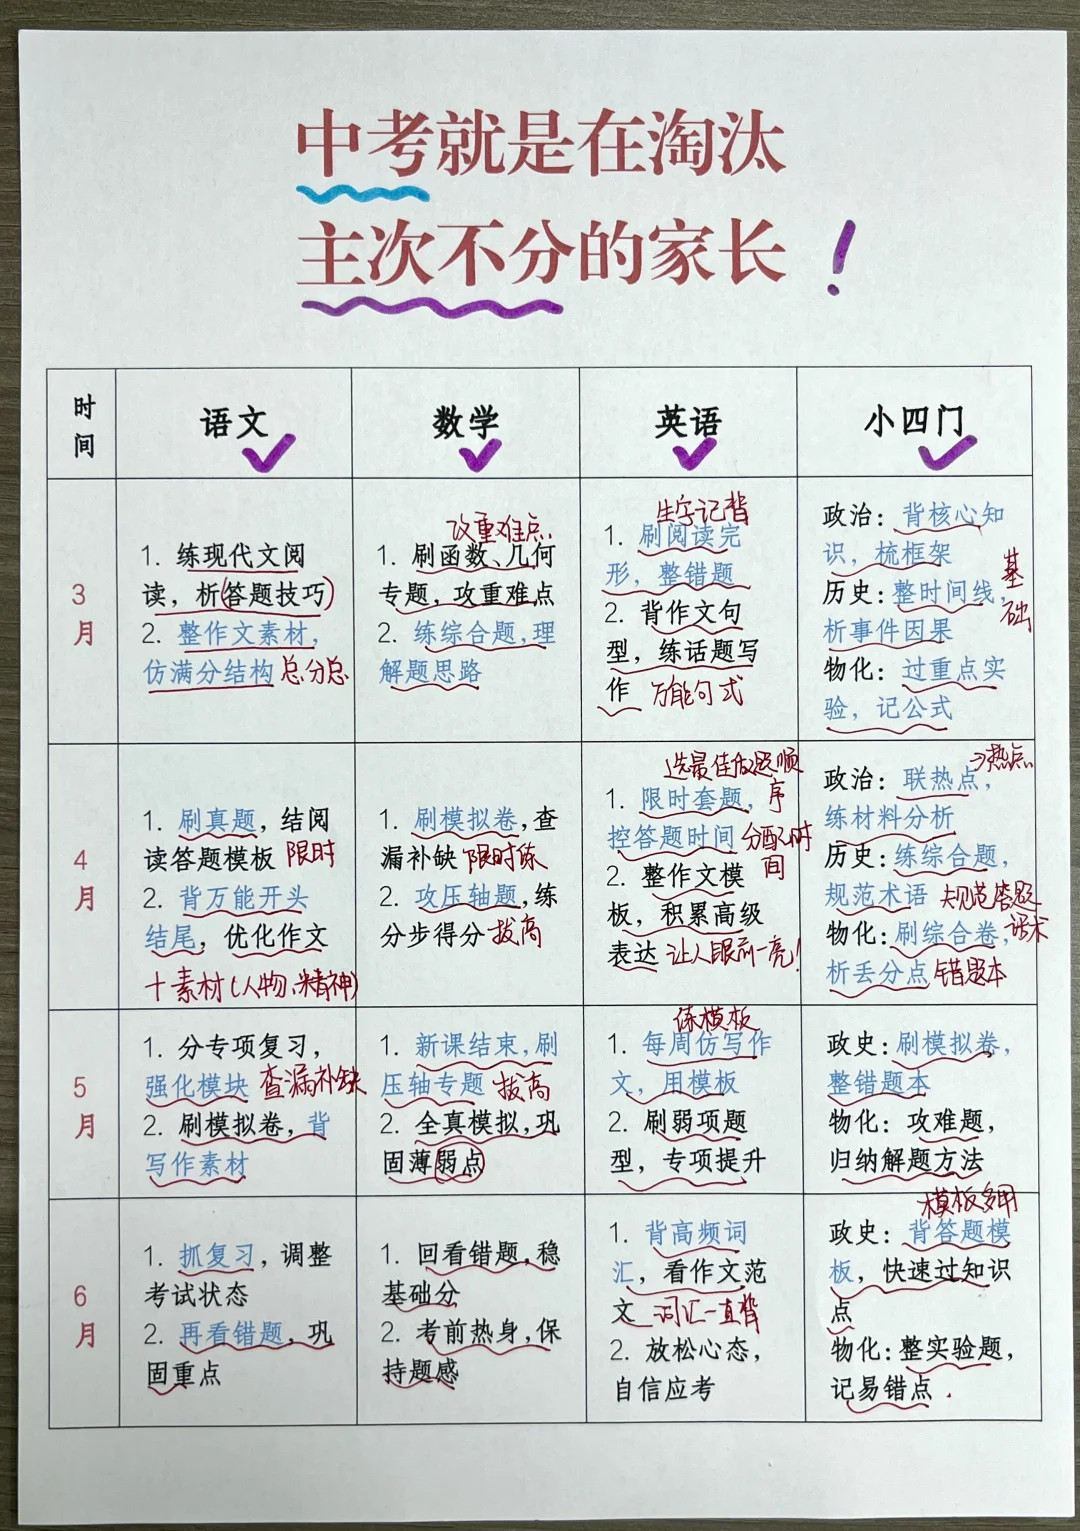 中考就是在淘汰
主次不分的家长!
时间
语文
数学
英语
小四门
3月
1. 练现代文阅
读，析(答题技巧)
2. 整作文素材，
仿满分结构 总分总
攻重难点
1. 刷函数、几何
专题，攻重难点
2. 练综合题，理
解题思路
生字记背
1. 刷阅读完
形，整错题
2. 背作文句
型，练话题写
作 万能句式
政治：背核心知
识，梳框架
历史：整时间线，
析事件因果
物化：过重点实
验，记公式
基础
4月
1. 刷真题，结阅
读答题模板 限时
2. 背万能开头
结尾，优化作文
十素材(人物、精神)
1. 刷模拟卷，查
漏补缺 限时练
2. 攻压轴题，练
分步得分 拔高
选最佳做题顺
1. 限时套题，序
控答题时间 分配时
间
2. 整作文模
板，积累高级
表达 让人眼前一亮!
政治：联热点，→热点
练材料分析
历史：练综合题，
规范术语 规范答题
物化：刷综合卷，话术
析丢分点 错题本
5月
1. 分专项复习，
强化模块 查漏补缺
2. 刷模拟卷，背
写作素材
1. 新课结束，刷
压轴专题 拔高
2. 全真模拟，巩
固薄弱点
练模板
1. 每周仿写作
文，用模板
2. 刷弱项题
型，专项提升
政史：刷模拟卷，
整错题本
物化：攻难题，
归纳解题方法
6月
1. 抓复习，调整
考试状态
2. 再看错题，巩
固重点
1. 回看错题，稳
基础分
2. 考前热身，保
持题感
1. 背高频词
汇，看作文范
文 词汇一直背
2. 放松心态，
自信应考
模板多用
政史：背答题模
板，快速过知识
点
物化：整实验题，
记易错点.